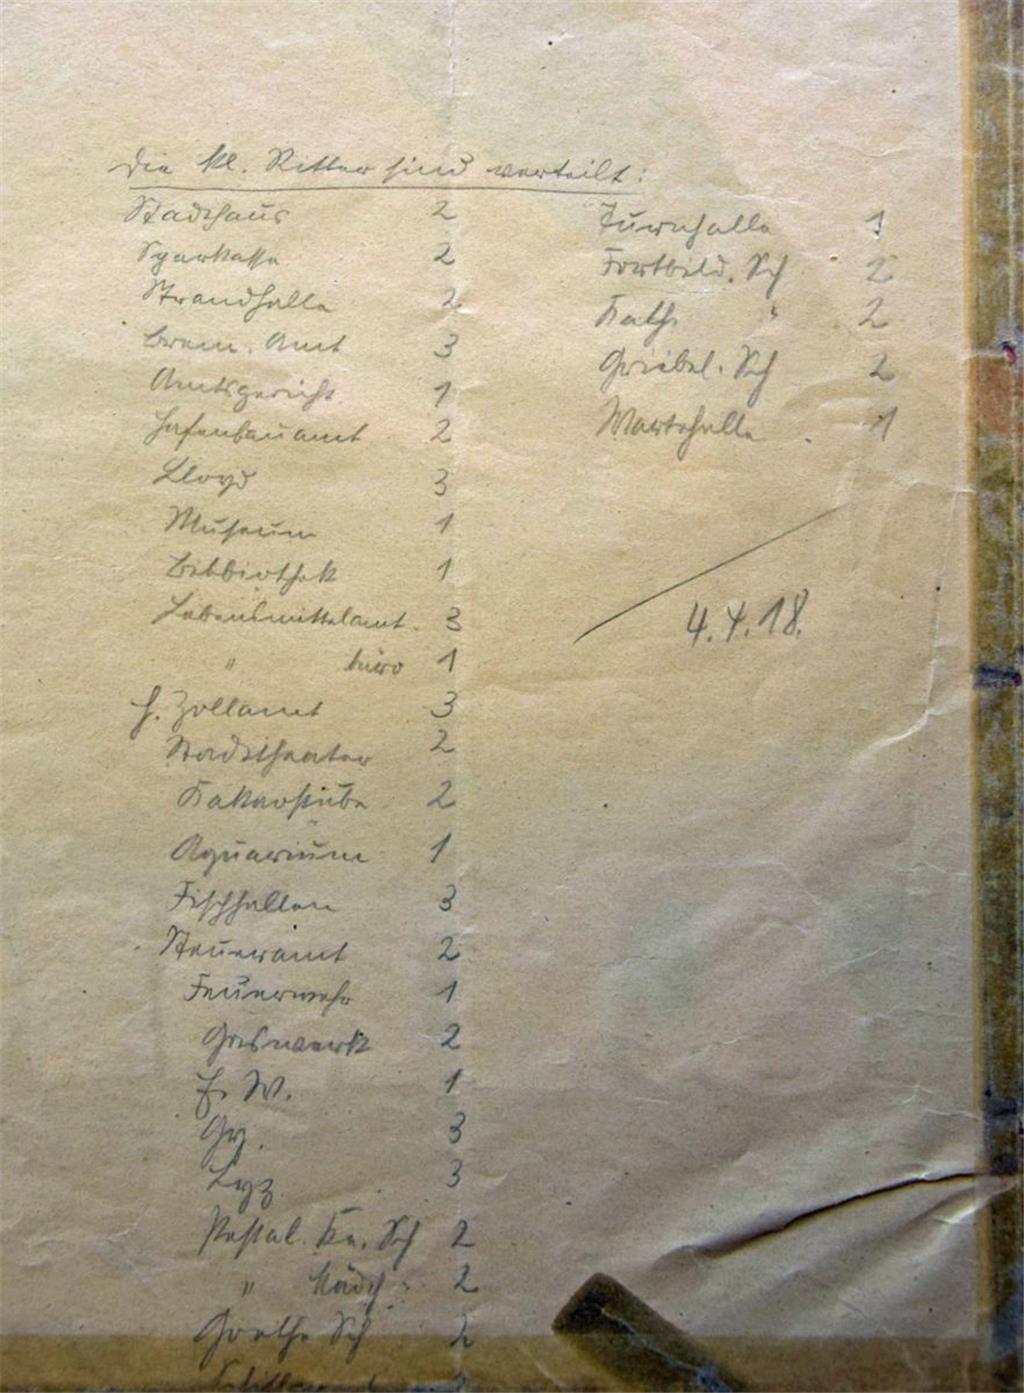 Die kl. Ritter sind verteilt:
Stadthaus 2
Sparkasse 2
Strandhalle 2
Brem. Amt 3
Amtsgericht 1
Hafenbauamt 2
Lloyd 3
Museum 1
Bibliothek 1
Lebensmittelamt 3
" büro 1
H. Zollamt 3
Stadttheater 2
Kakaostube 2
Aquarium 1
Fischhallen 3
Steueramt 2
Feuerwehr 1
Gaswerk 2
E. W. 1
Gy. 3
Lyz 3
Pestal. Kn. Sch 2
" Mädch " 2
Goethe Sch 2
Turnhalle 1
Fortbild. Sch 2
Kath. " 2
Griebel. Sch 2
Wartehalle 1
4.4.18.